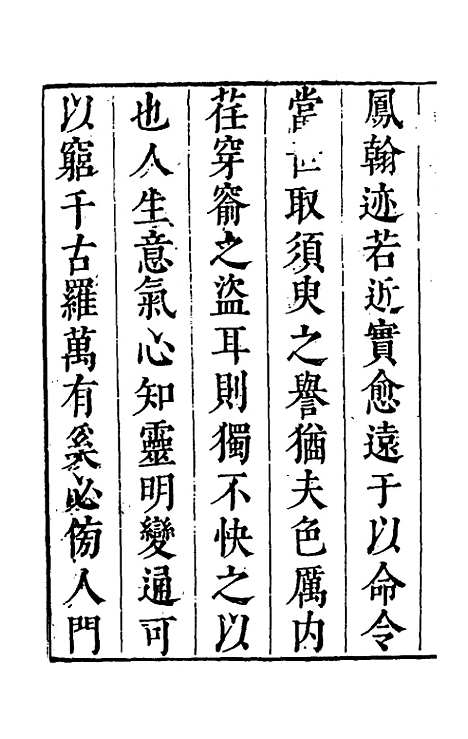 鳳翰迹若近實愈遠于以命令
當世取須臾之譽猶夫色厲内
荏穿窬之盜耳則獨不快之以
也人生意氣心知靈明變通可
以窮千古羅萬有奚必傍人門